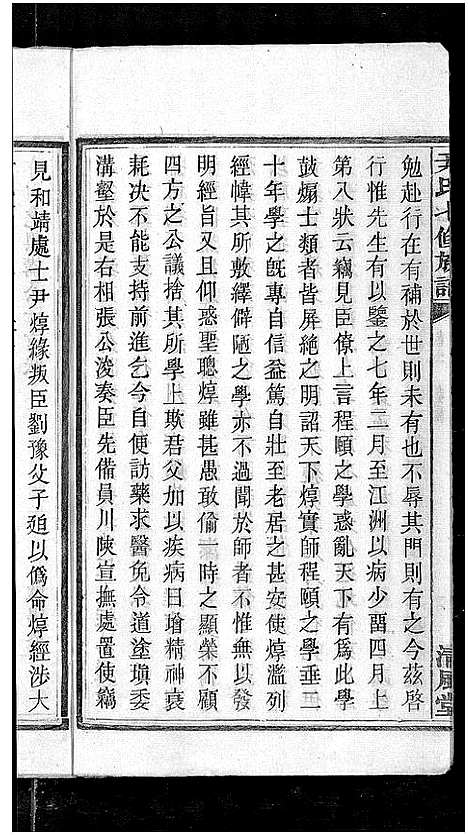 尹氏七修族譜
清風堂
勉赴行在有補於世則未有也不辱其門則有之今茲啓
行惟先生有以鑒之七年二月至江洲以病少畱四月上
第八狀云竊見臣僚上言程頤之學惑亂天下有爲此學
鼓煽士類者皆屏絶之明詔天下焞實師程頤之學垂二
十年學之旣專自信益篤自壯至老居之甚安使焞濫列
經幃其所敷繹僻陋之學亦不過聞於師者不惟無以發
明經旨又且仰惑聖聰焞雖甚愚敢偷一時之顯榮不顧
四方之公議捨其所學上欺君父加以疾病日增精神衰
耗决不能支持前進乞今自便訪藥求醫免令道塗瑱委
溝壑於是右相張公浚奏臣先備員川陝宣撫處置使竊
見和靖處士尹焞緣叛臣劉豫父子廹以僞命焞經涉大